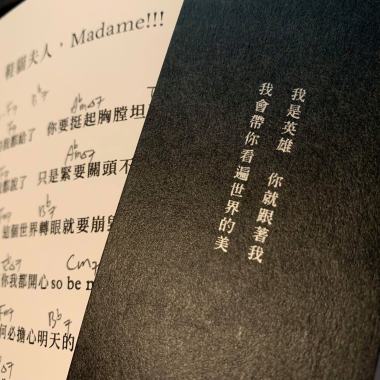 鞋貓夫人，Madame!!!
Fm7 Bb7 AbΔ7
都給了 你要挺起胸膛坦
AbΔ7
我都說了 只是緊要關頭不
Fm7 Bb7
這個世界轉眼就要崩
Cm7
你我都開心so be
Fm7 Bb7
何必擔心明天的
我是英雄 你就跟著我
我會帶你看遍世界的美